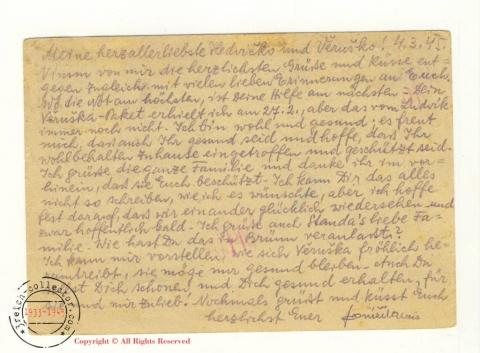 Meine herzallerliebste Hedvičko und Věruško! 4.3.45.
Nimm von mir die herzlichsten Grüsse und Küsse ent-
gegen zugleich mit vielen lieben Erinnerungen an Euch.
Wo die Not am höchsten, ist Deine Hilfe am nächsten - Dein
Věruška-Paket erhielt ich am 27.2., aber das vom
immer noch nicht. Ich bin wohl und gesund; es freut
mich, dass auch Ihr gesund seid und hoffe, dass Ihr
wohlbehalten zuhause eingetroffen und geschützt seid.
Ich grüsse die ganze Familie und danke ihr im vor-
hinein, dass sie Euch beschützt. Ich kann Dir das alles
nicht so schreiben, wie ich es wünschte, aber ich hoffe
fest darauf, dass wir einander glücklich wiedersehen und
zwar hoffentlich bald. Ich grüsse auch Standa's liebe Fa-
milie. Wie hast Du das in Brünn veranlasst?
Ich kann mir vorstellen, wie sich Věruška fröhlich he-
rumtreibt, sie möge nur gesund bleiben. Auch Du
Dich schonen, und Dich gesund erhalten, für
und mir zulieb. Nochmals grüsst und küsst Euch
herzlichst Euer
3reich-collector.com
1933-1945
Copyright © All Rights Reserved